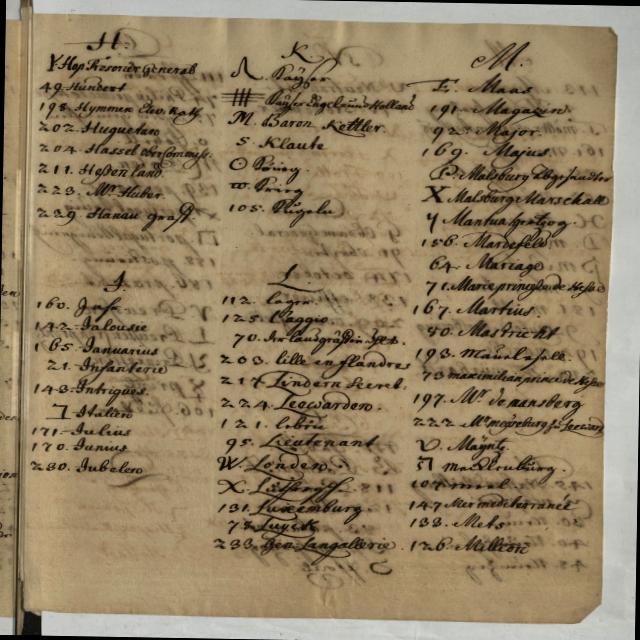 H.
Hop Tresorier General
49. Hundert
198. Hymmen
202. Huguetan
204. Hassel
211. Hessen land
223. Mr. Huber
239. Hanau graff
J.
160. Jnfr
142. Jalousie
165. Januarius
21. Infanterie
143. Intrigues
Italien
171. Julius
170. Junius
230. Jubelen
K
Kayser
Kayser Engel und Holland
M. Baron Kettler
5. Klaute
O König
105. Kugeln
L
112. Lager
125.
70. der landgräffin
203. lille en flandres
217. Lindern Secret.
224. Leewarden.
121. lebru
95. Lieutenant
W. Londen.
X.
131. Luxemburg.
78. Luyck
233. Langallerie
M.
F. Maas
191. Magazin
92. Major
169. Majus
P. Malsburg Abgesandter
X Malsburg Marschall
Mantua hertzog
156. Mardefeld
64. Mariage
71. Marie princesse de Hesse
167. Martius.
80. Mastricht
193.
73 maximilian prince de Hesse
197. Mr. de mansberg
222. Mr. in Leeward
V. Mayntz
107.
147 Mer mediterranée
133. Mets
126. Million